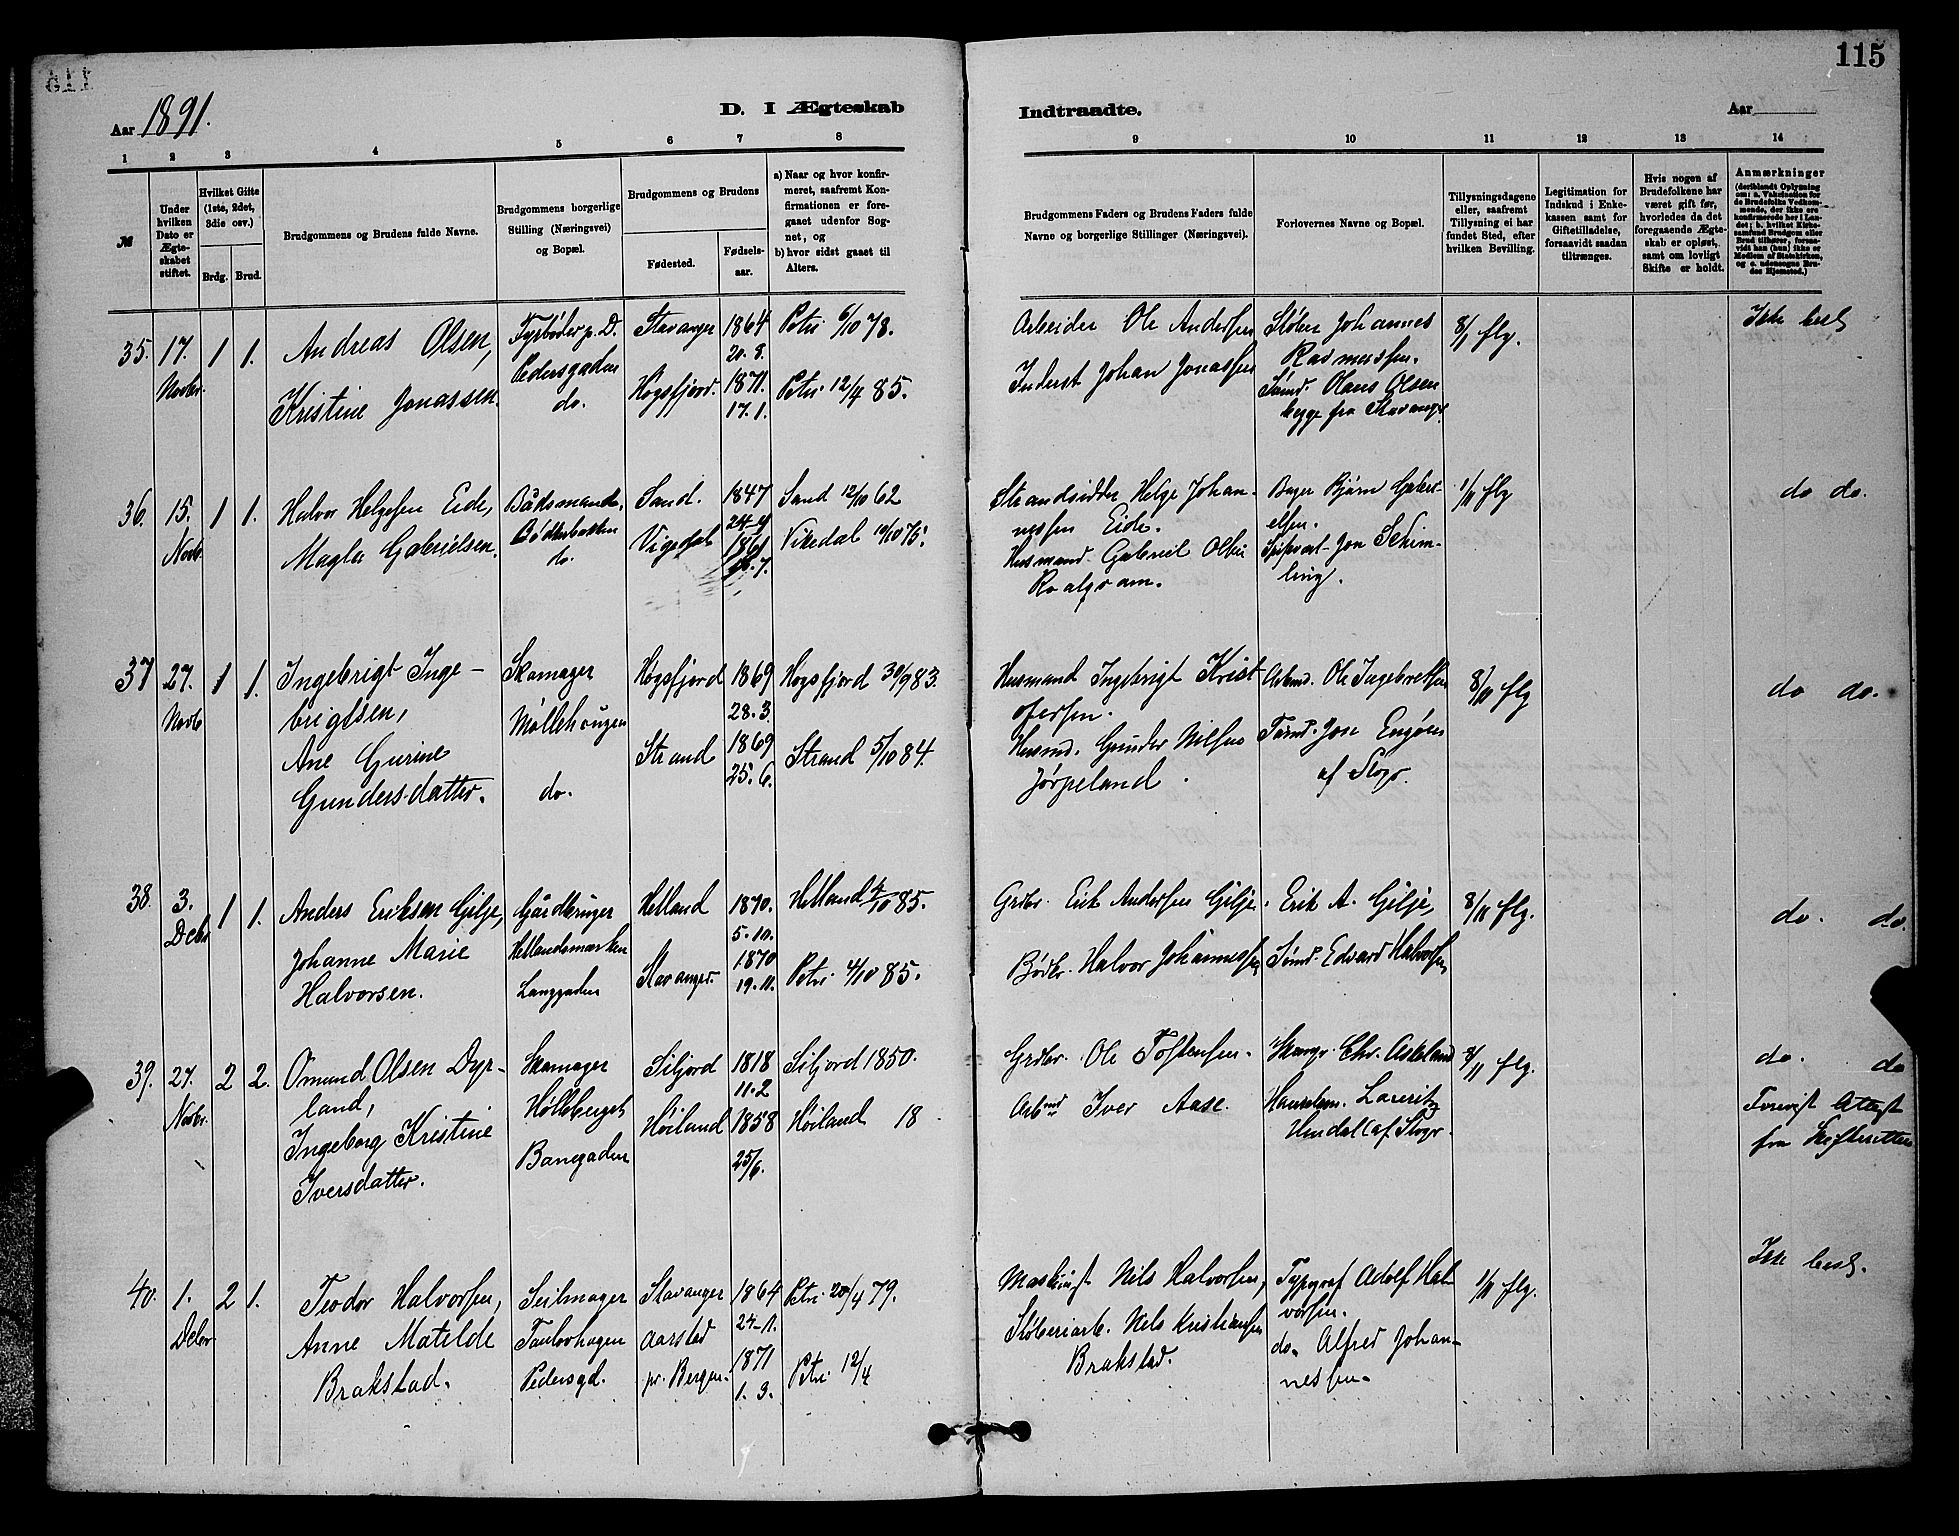 115
Aar 1891.
D. I Ægteskab
Indtraadte.
Aar
1 2 3 4 5 6 7 8 9 10 11 12 13 14
№
Under hvilken Dato er Ægteskabet stiftet.
Hvilket Gifte (1ste, 2det, 3die osv.)
Brdg. Brud.
Brudgommens og Brudens fulde Navne.
Brudgommens borgerlige Stilling (Næringsvei) og Bopæl.
Brudgommens og Brudens
Fødested.
Fødselsaar.
a) Naar og hvor konfirmeret, saafremt Konfirmationen er foregaaet udenfor Sognet, og
b) hvor sidst gaaet til Alters.
Brudgommens Faders og Brudens Faders fulde Navne og borgerlige Stillinger (Næringsvei).
Forlovernes Navne og Bopæl.
Tillysningsdagene eller, saafremt Tillysning ei har fundet Sted, efter hvilken Bevilling.
Legitimation for Indskud i Enkekassen samt for Giftetilladelse, forsaavidt saadan tiltrænges.
Hvis nogen af Brudefolkene har været gift før, hvorledes da det foregaaende Ægteskab er opløst, samt om lovligt Skifte er holdt.
Anmærkninger
35. 17. Novbr. 1 1.
Andreas Olsen,
Kristine Jonassen.
Fyrbøder p. D.
Pedersgaden
do.
Stavanger
Høgsfjord.
1864
20. 8.
1871.
17. 1.
Petri 6/10 78.
Petri 12/4 85.
Arbeider Ole Andersen
Inderst Johan Jonassen
Støber Johannes
Rasmussen.
Sømd. Olaus Olsen
begge fra Stavanger
8/1 flg.
Ikke besl
36. 15. Novbr 1 1.
Halvor Helgesen Eide,
Magla Gabrielsen.
Baadsmand,
do.
Sand.
Vigedal
1847
24-4
1861
Sand 12/10 62
Vikedal 10/10 75.
Strandsidder Helge Johan-
nessen Eide.
Husmand Gabriel Olsen
Roalqvam.
Bager Bjørn Gabri-
elsen.
Jon Schim-
ling.
1/11 flg
do do.
37 27. Novbr 1 1.
Ingebrigt Inge-
brigtsen,
Ane Gurine
Gundersdatter.
Skomager
Møllehougen
do.
Høgsfjord
Strand
1869
28. 3.
1869
25. 6.
Høgsfjord 30/9 83.
Strand 5/10 84.
Husmand Ingebrigt Krist
ofersen.
Husmd. Gunder Nilsen
Jørpeland.
Arbmd. Ole Ingebretsen
Tømd. Jon Engøen
af Stvgr.
8/11 flg
do do.
38. 3. Debr 1 1.
Anders Eriksen Gilje,
Johanne Marie
Halvorsen.
Gårdbruger
Hellandsmarken
Langgaden
Helland
Stavanger.
1870.
5. 10.
1870
19. 11.
Helland 4/10 85.
Petri 4/10 85.
Grdbr. Erik Andersen Gilje.
Bødkr. Halvor Johannessen
Erik A. Gilje,
Sømd. Edvard Halvorsen,
8/11 flg.
do. do.
39. 27. Novbr. 2 2.
Omund Olsen Dyr-
land,
Ingeborg Kristine
Iversdatter.
Skomager
Banegaden
Siljord
Høiland
1818
11. 2
1858
25/6.
Siljord 1850.
Høiland 18
Grdbr. Ole Tostensen.
Arbmd Iver Aase.
Skomgr. Chr. Askeland
Lauritz
af Stvgr.
8/11 flg.
do. do
Forevist Attest
fra Skifteretten
40. 1. Debr 2 1.
Teodor Halvorsen,
Anne Matilde
Brakstad.
Seilmager
Pedersgd.
Stavanger
Aarstad
pr. Bergen.
1864
24-1.
1871
1. 3.
Petri 20/4 79.
Petri 12/4
Maskinist Nils Halvorsen,
Støberiarb. Nils Kristiansen
Brakstad.
Typograf Adolf Hal-
vorsen.
do. Alfred Johan-
nessen.
1/11 flg.
Ikke besl.